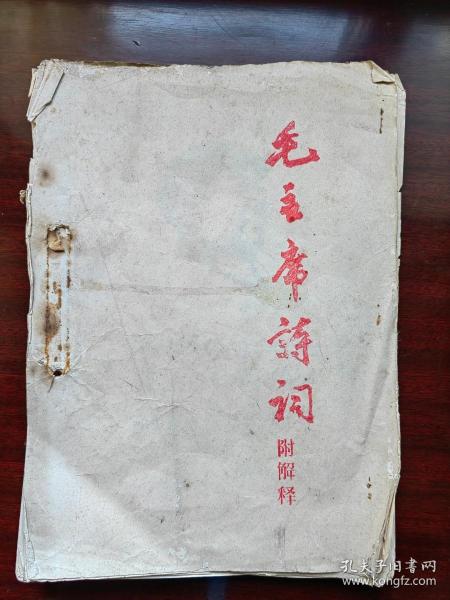 毛主席詩詞
附解释
孔夫子旧书网
www.kongfz.com